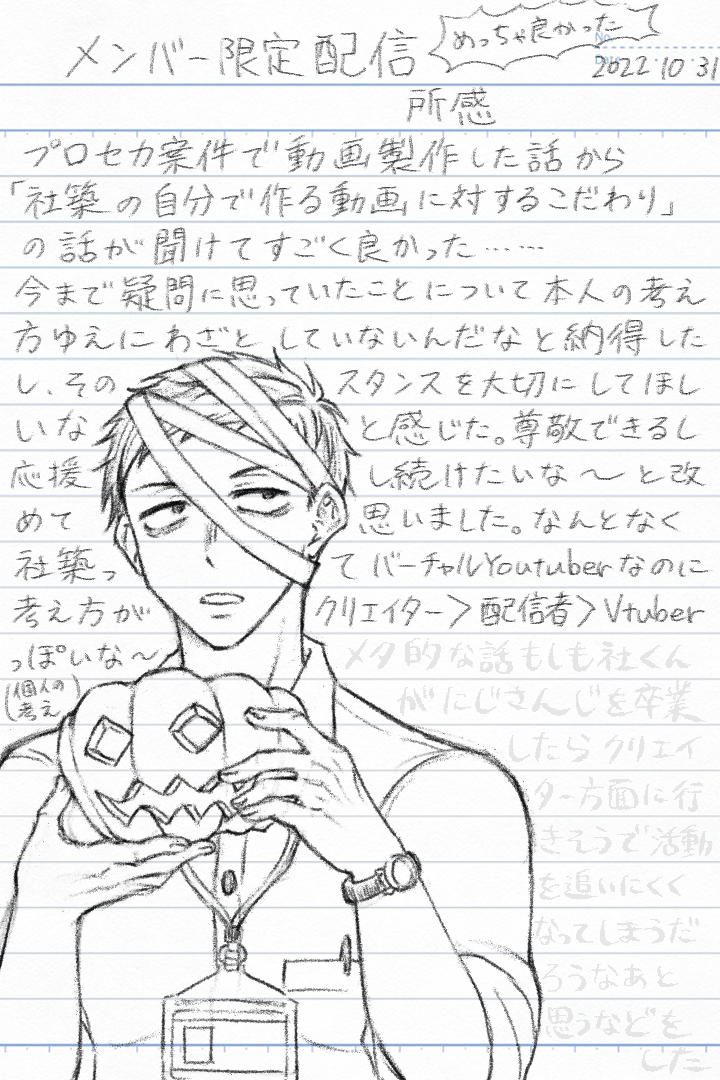 メンバー限定配信
めっちゃ良かった
No.
Date
2022 10 31
所感
プロセカ案件で動画製作した話から
「社築の自分で作る動画に対するこだわり」
の話が聞けてすごく良かった……
今まで疑問に思っていたことについて本人の考え
方ゆえにわざとしていないんだなと納得した
し、そのスタンスを大切にしてほし
いなと感じた。尊敬できるし
応援し続けたいな〜と改
めて思いました。なんとなく
社築ってバーチャルYoutuberなのに
考え方がクリエイター>配信者>Vtuber
っぽいな〜
(個人の
考え)
メタ的な話もしも社くん
がにじさんじを卒業
したらクリエイ
ター方面に行
きそうで活動
を追いにくく
なってしまうだ
ろうなあと
思うなどを
した